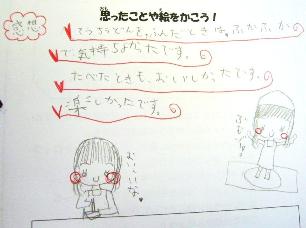 思ったことや絵をかこう！
感想
てっちうどんを、ふんだときは。ふかふか
で、気持ちよかったです。
たべたときも、おいしかったです。
楽しかったです。
おいしいな